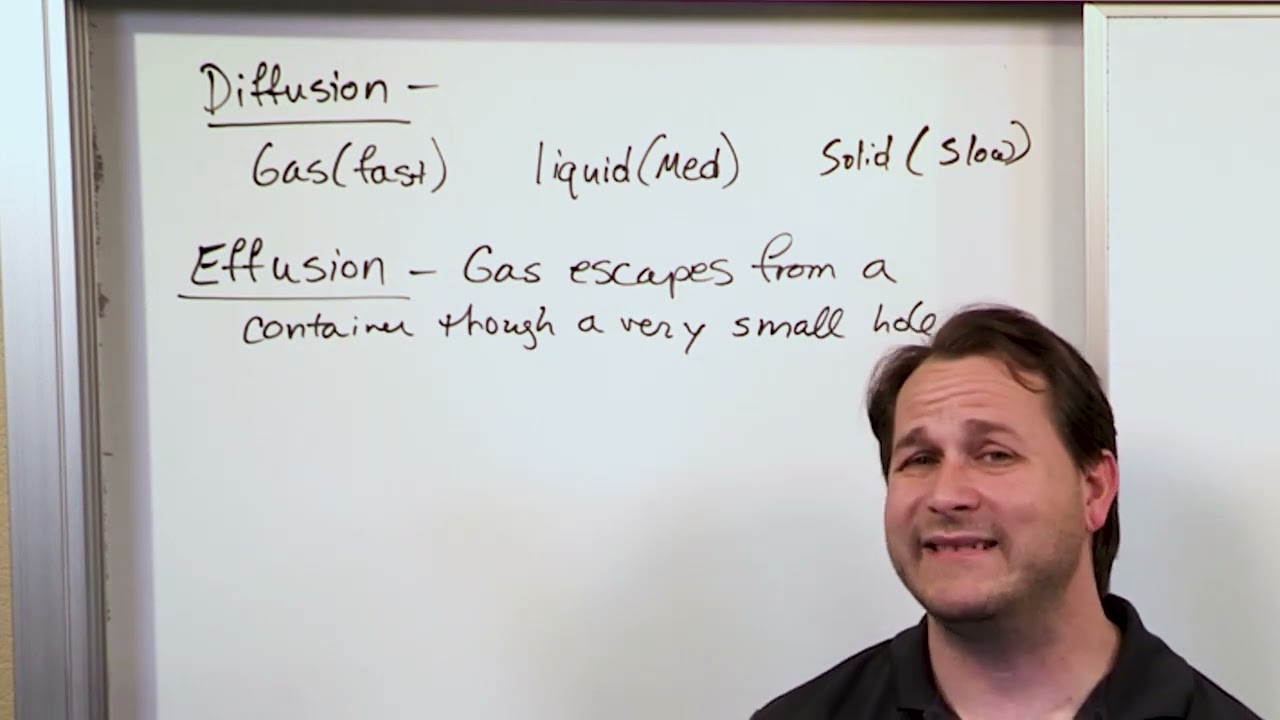 Diffusion -
Gas (fast) liquid (Med) Solid (Slow)
Effusion - Gas escapes from a
container though a very small hole